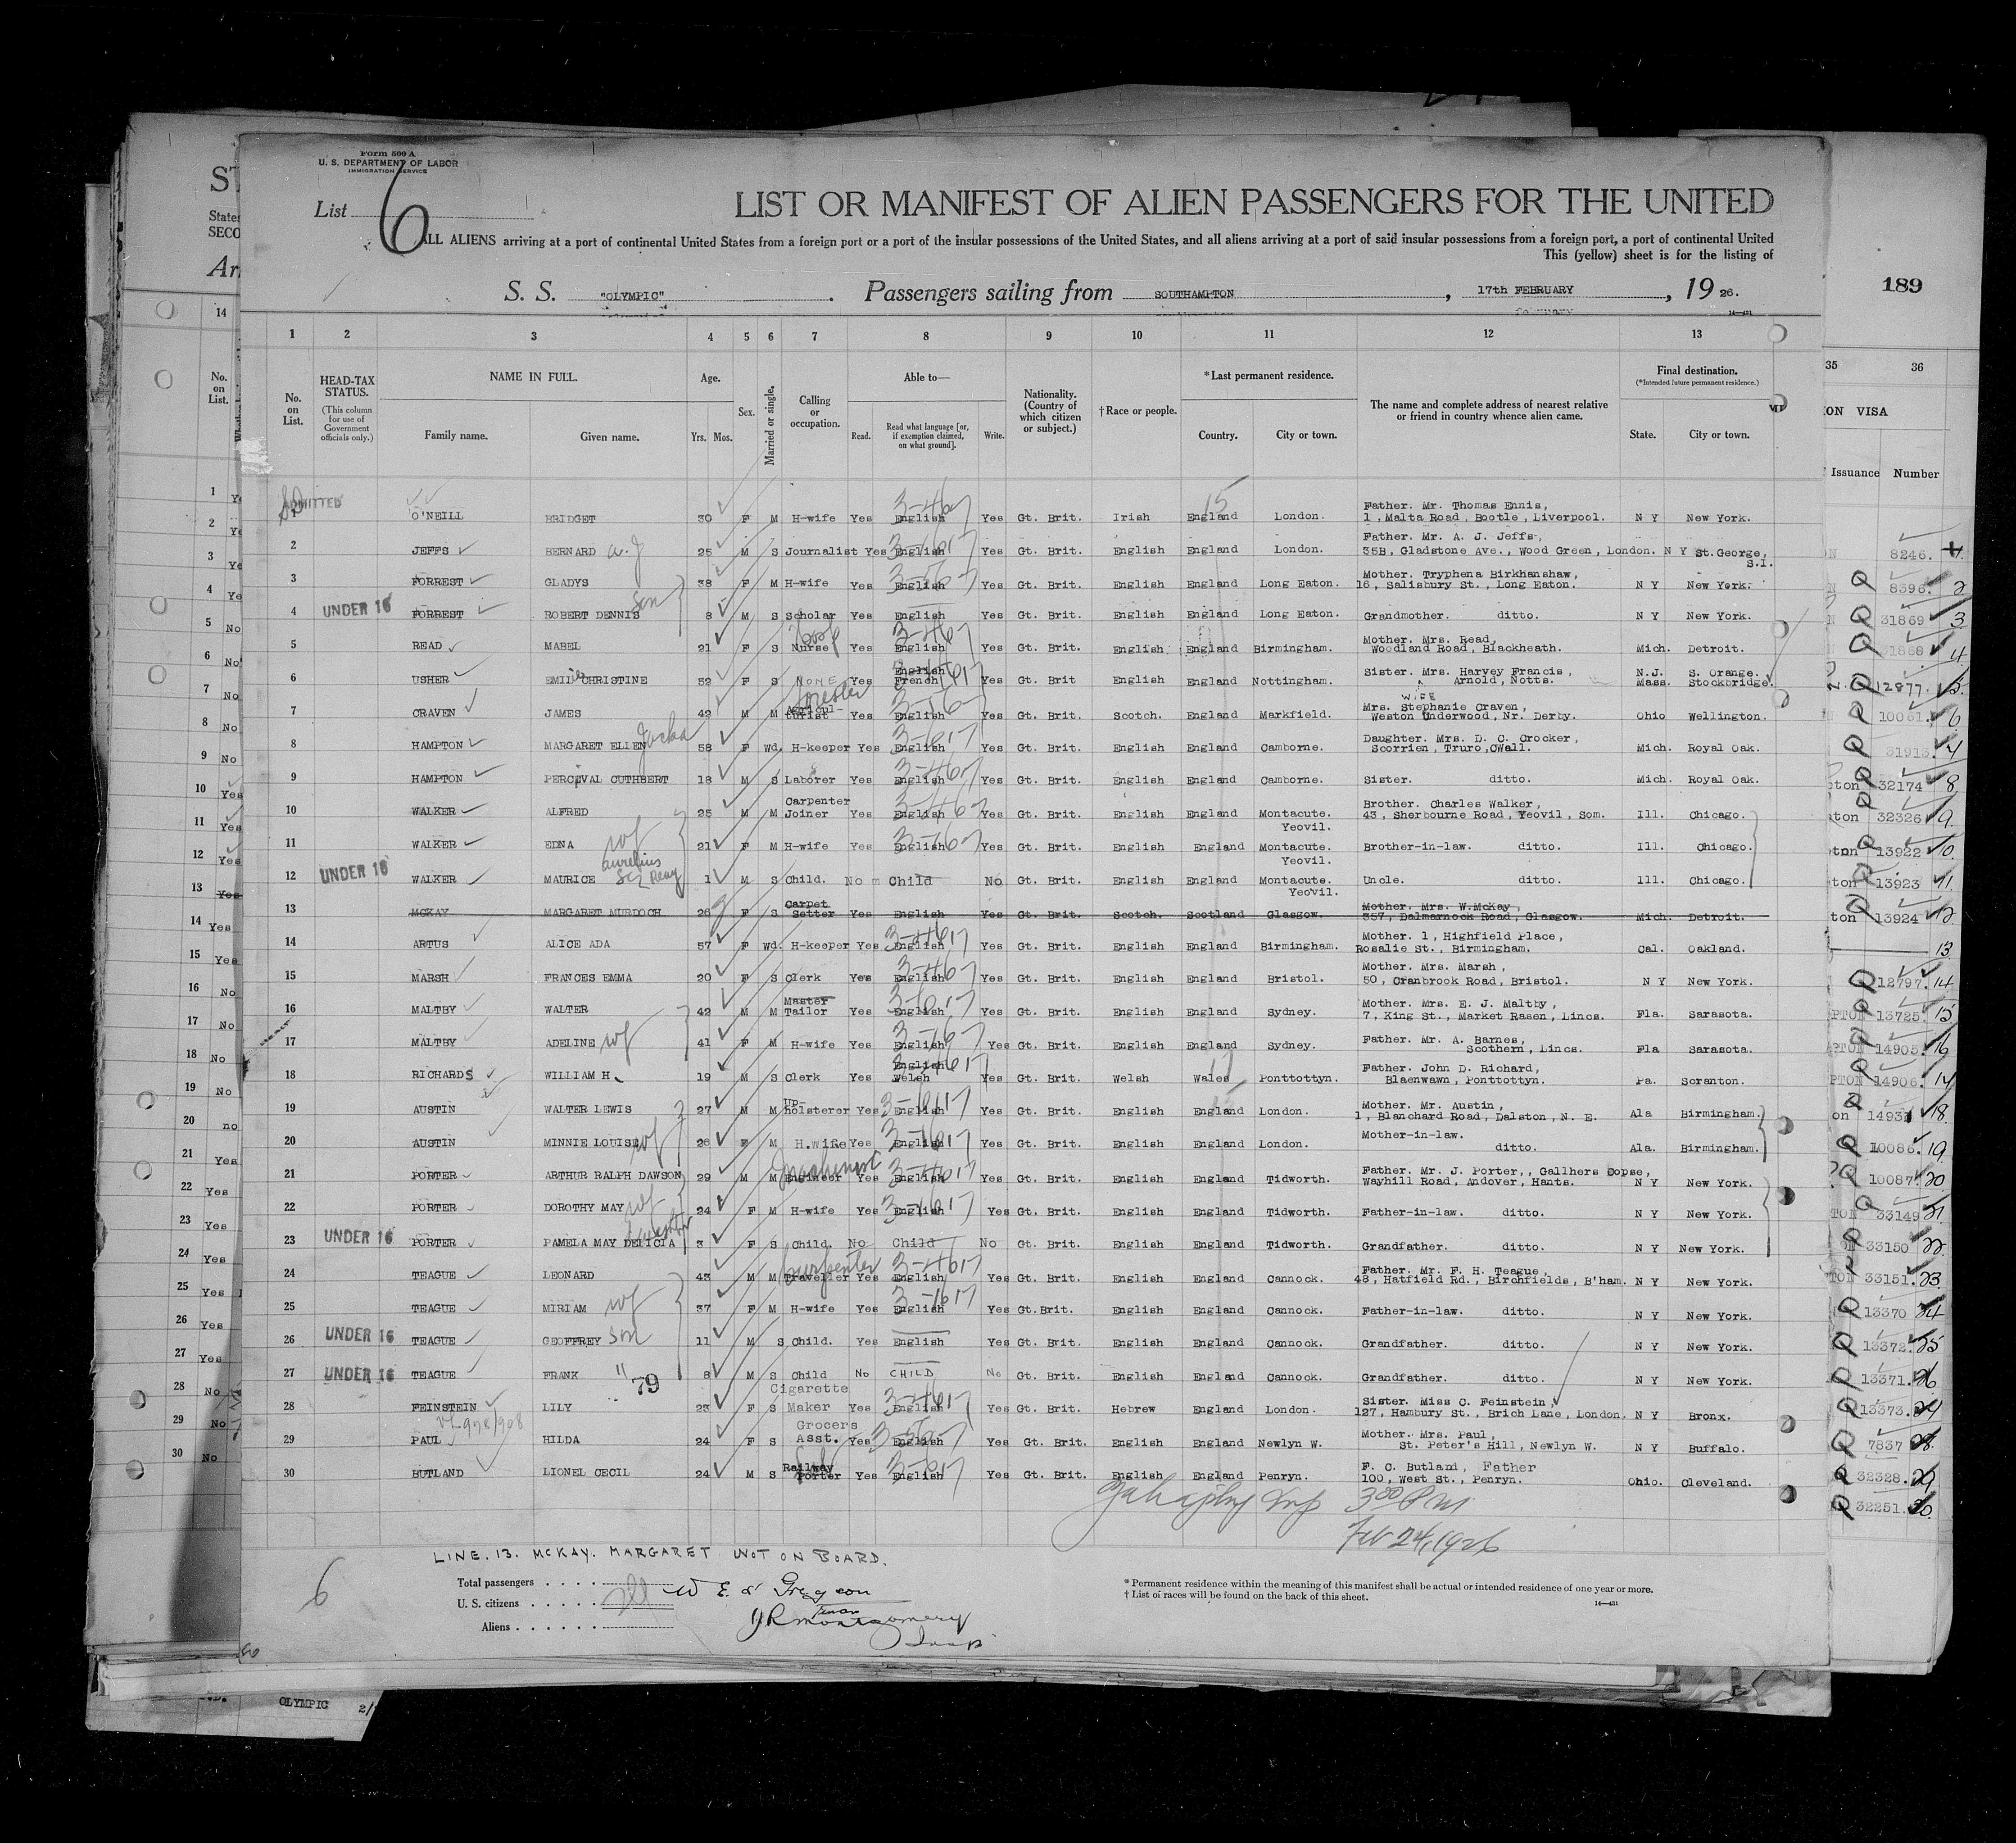 Form 500 A
U. S. DEPARTMENT OF LABOR
IMMIGRATION SERVICE
List 6
LIST OR MANIFEST OF ALIEN PASSENGERS FOR THE UNITED
ALL ALIENS arriving at a port of continental United States from a foreign port or a port of the insular possessions of the United States, and all aliens arriving at a port of said insular possessions from a foreign port, a port of continental United
This (yellow) sheet is for the listing of
S. S. "OLYMPIC". Passengers sailing from SOUTHAMPTON, 17th FEBRUARY, 1926.
189
1 2 3 4 5 6 7 8 9 10 11 12 13
No. on List.
HEAD-TAX STATUS.
(This column for use of Government officials only.)
NAME IN FULL.
Family name. Given name.
Age.
Yrs. Mos.
Sex.
Married or single.
Calling or occupation.
Able to—
Read. Read what language [or, if exemption claimed, on what ground]. Write.
Nationality. (Country of which citizen or subject.)
† Race or people.
* Last permanent residence.
Country. City or town.
The name and complete address of nearest relative or friend in country whence alien came.
Final destination.
(*Intended future permanent residence.)
State. City or town.
35 36
ION VISA
Issuance Number
ADMITTED O'NEILL BRIDGET 30 F M H-wife Yes English Yes Gt. Brit. Irish England London. Father. Mr. Thomas Ennis, 1, Malta Road, Bootle, Liverpool. N Y New York.
2 JEFFS BERNARD a. J 25 M S Journalist Yes English Yes Gt. Brit. English England London. Father. Mr. A. J. Jeffs, 35B, Gladstone Ave., Wood Green, London. N Y St.George, S.I.
3 FORREST GLADYS 38 F M H-wife Yes English Yes Gt. Brit. English England Long Eaton. Mother. Tryphena Birkhanshaw, 16, Salisbury St., Long Eaton. N Y New York.
4 UNDER 16 FORREST ROBERT DENNIS son 8 M S Scholar Yes English Yes Gt. Brit. English England Long Eaton. Grandmother. ditto. N Y New York.
5 READ MABEL 21 F S Nurse Yes English Yes Gt. Brit. English England Birmingham. Mother. Mrs. Read, Woodland Road, Blackheath. Mich. Detroit.
6 USHER EMILIE CHRISTINE 52 F S NONE Yes English French Yes Gt. Brit English England Nottingham. Sister. Mrs. Harvey Francis, Arnold, Notts. N.J. S. Orange. Mass. Stockbridge.
7 CRAVEN JAMES 42 M M Agricul-turist forester Yes English Yes Gt. Brit. Scotch. England Markfield. wife Mrs. Stephanie Craven, Weston Underwood, Nr. Derby. Ohio Wellington.
8 HAMPTON MARGARET ELLEN 58 F Wd. H-keeper Yes English Yes Gt. Brit. English England Camborne. Daughter. Mrs. D. C. Crocker, Scorrien, Truro, CWall. Mich. Royal Oak.
9 HAMPTON PERCIVAL CUTHBERT 18 M S Laborer Yes English Yes Gt. Brit. English England Camborne. Sister. ditto. Mich. Royal Oak.
10 WALKER ALFRED 25 M M Carpenter Joiner Yes English Yes Gt. Brit. English England Montacute. Yeovil. Brother. Charles Walker, 43, Sherbourne Road, Yeovil, Som. Ill. Chicago.
11 WALKER EDNA wf 21 F M H-wife Yes English Yes Gt. Brit. English England Montacute. Yeovil. Brother-in-law. ditto. Ill. Chicago.
12 UNDER 16 WALKER MAURICE 1 M S Child. No Child No Gt. Brit. English England Montacute. Yeovil. Uncle. ditto. Ill. Chicago.
13 MCKAY MARGARET MURDOCH 26 F S Carpet Setter Yes English Yes Gt. Brit. Scotch. Scotland Glasgow. Mother. Mrs. W.McKay, 357, Dalmarnock Road, Glasgow. Mich. Detroit.
14 ARTUS ALICE ADA 57 F Wd. H-keeper Yes English Yes Gt. Brit. English England Birmingham. Mother. 1, Highfield Place, Rosalie St., Birmingham. Cal. Oakland.
15 MARSH FRANCES EMMA 20 F S Clerk Yes English Yes Gt. Brit. English England Bristol. Mother. Mrs. Marsh, 50, Cranbrook Road, Bristol. N Y New York.
16 MALTBY WALTER 42 M M Master Tailor Yes English Yes Gt. Brit. English England Sydney. Mother. Mrs. E. J. Maltby, 7, King St., Market Rasen, Lincs. Fla. Sarasota.
17 MALTBY ADELINE wf 41 F M H-wife Yes English Yes Gt. Brit. English England Sydney. Father. Mr. A. Barnes, Scothern, Lincs. Fla Sarasota.
18 RICHARDS WILLIAM H. 19 M S Clerk Yes English Welsh Yes Gt. Brit. Welsh Wales Ponttottyn. Father. John D. Richard, Blaenwawn, Ponttottyn. Pa. Scranton.
19 AUSTIN WALTER LEWIS 27 M M Up-holsterer Yes English Yes Gt. Brit. English England London. Mother. Mr. Austin, 1, Blanchard Road, Dalston, N. E. Ala Birmingham.
20 AUSTIN MINNIE LOUISE wf 26 F M H.wife Yes English Yes Gt. Brit. English England London. Mother-in-law. ditto. Ala. Birmingham.
21 PORTER ARTHUR RALPH DAWSON 29 M M Engineer Yes English Yes Gt. Brit. English England Tidworth. Father. Mr. J. Porter,, Gallhers Copse, Wayhill Road, Andover, Hants. N Y New York.
22 PORTER DOROTHY MAY wf 24 F M H-wife Yes English Yes Gt. Brit. English England Tidworth. Father-in-law. ditto. N Y New York.
23 UNDER 16 PORTER PAMELA MAY DELICIA 3 F S Child. No Child No Gt. Brit. English England Tidworth. Grandfather. ditto. N Y New York.
24 TEAGUE LEONARD 43 M M Traveller carpenter Yes English Yes Gt. Brit. English England Cannock. Father. Mr. F. H. Teague, 48, Hatfield Rd., Birchfields, B'ham. N Y New York.
25 TEAGUE MIRIAM wf 37 F M H-wife Yes English Yes Gt.Brit. English England Cannock. Father-in-law. ditto. N Y New York.
26 UNDER 16 TEAGUE GEOFFREY son 11 M S Child. Yes English Yes Gt. Brit. English England Cannock. Grandfather. ditto. N Y New York.
27 UNDER 16 TEAGUE FRANK " 79 8 M S Child No CHILD No Gt. Brit. English England Cannock. Grandfather. ditto. N Y New York.
28 FEINSTEIN LILY 23 F S Cigarette Maker Yes English Yes Gt. Brit. Hebrew England London. Sister. Miss C. Feinstein, 127, Hambury St., Brich Lane, London, N Y Bronx.
29 PAUL HILDA 24 F S Grocers Asst. Yes English Yes Gt. Brit. English England Newlyn W. Mother. Mrs. Paul, St. Peter's Hill, Newlyn W. N Y Buffalo.
30 BUTLAND LIONEL CECIL 24 M S Railway Porter Yes English Yes Gt. Brit. English England Penryn. F. C. Butland, Father 100, West St., Penryn. Ohio. Cleveland.
3 00 PM
Feb 24, 1926
LINE. 13. MCKAY. MARGARET NOT ON BOARD.
6
Total passengers
U. S. citizens
Aliens
* Permanent residence within the meaning of this manifest shall be actual or intended residence of one year or more.
† List of races will be found on the back of this sheet.
14—431
OLYMPIC 2/